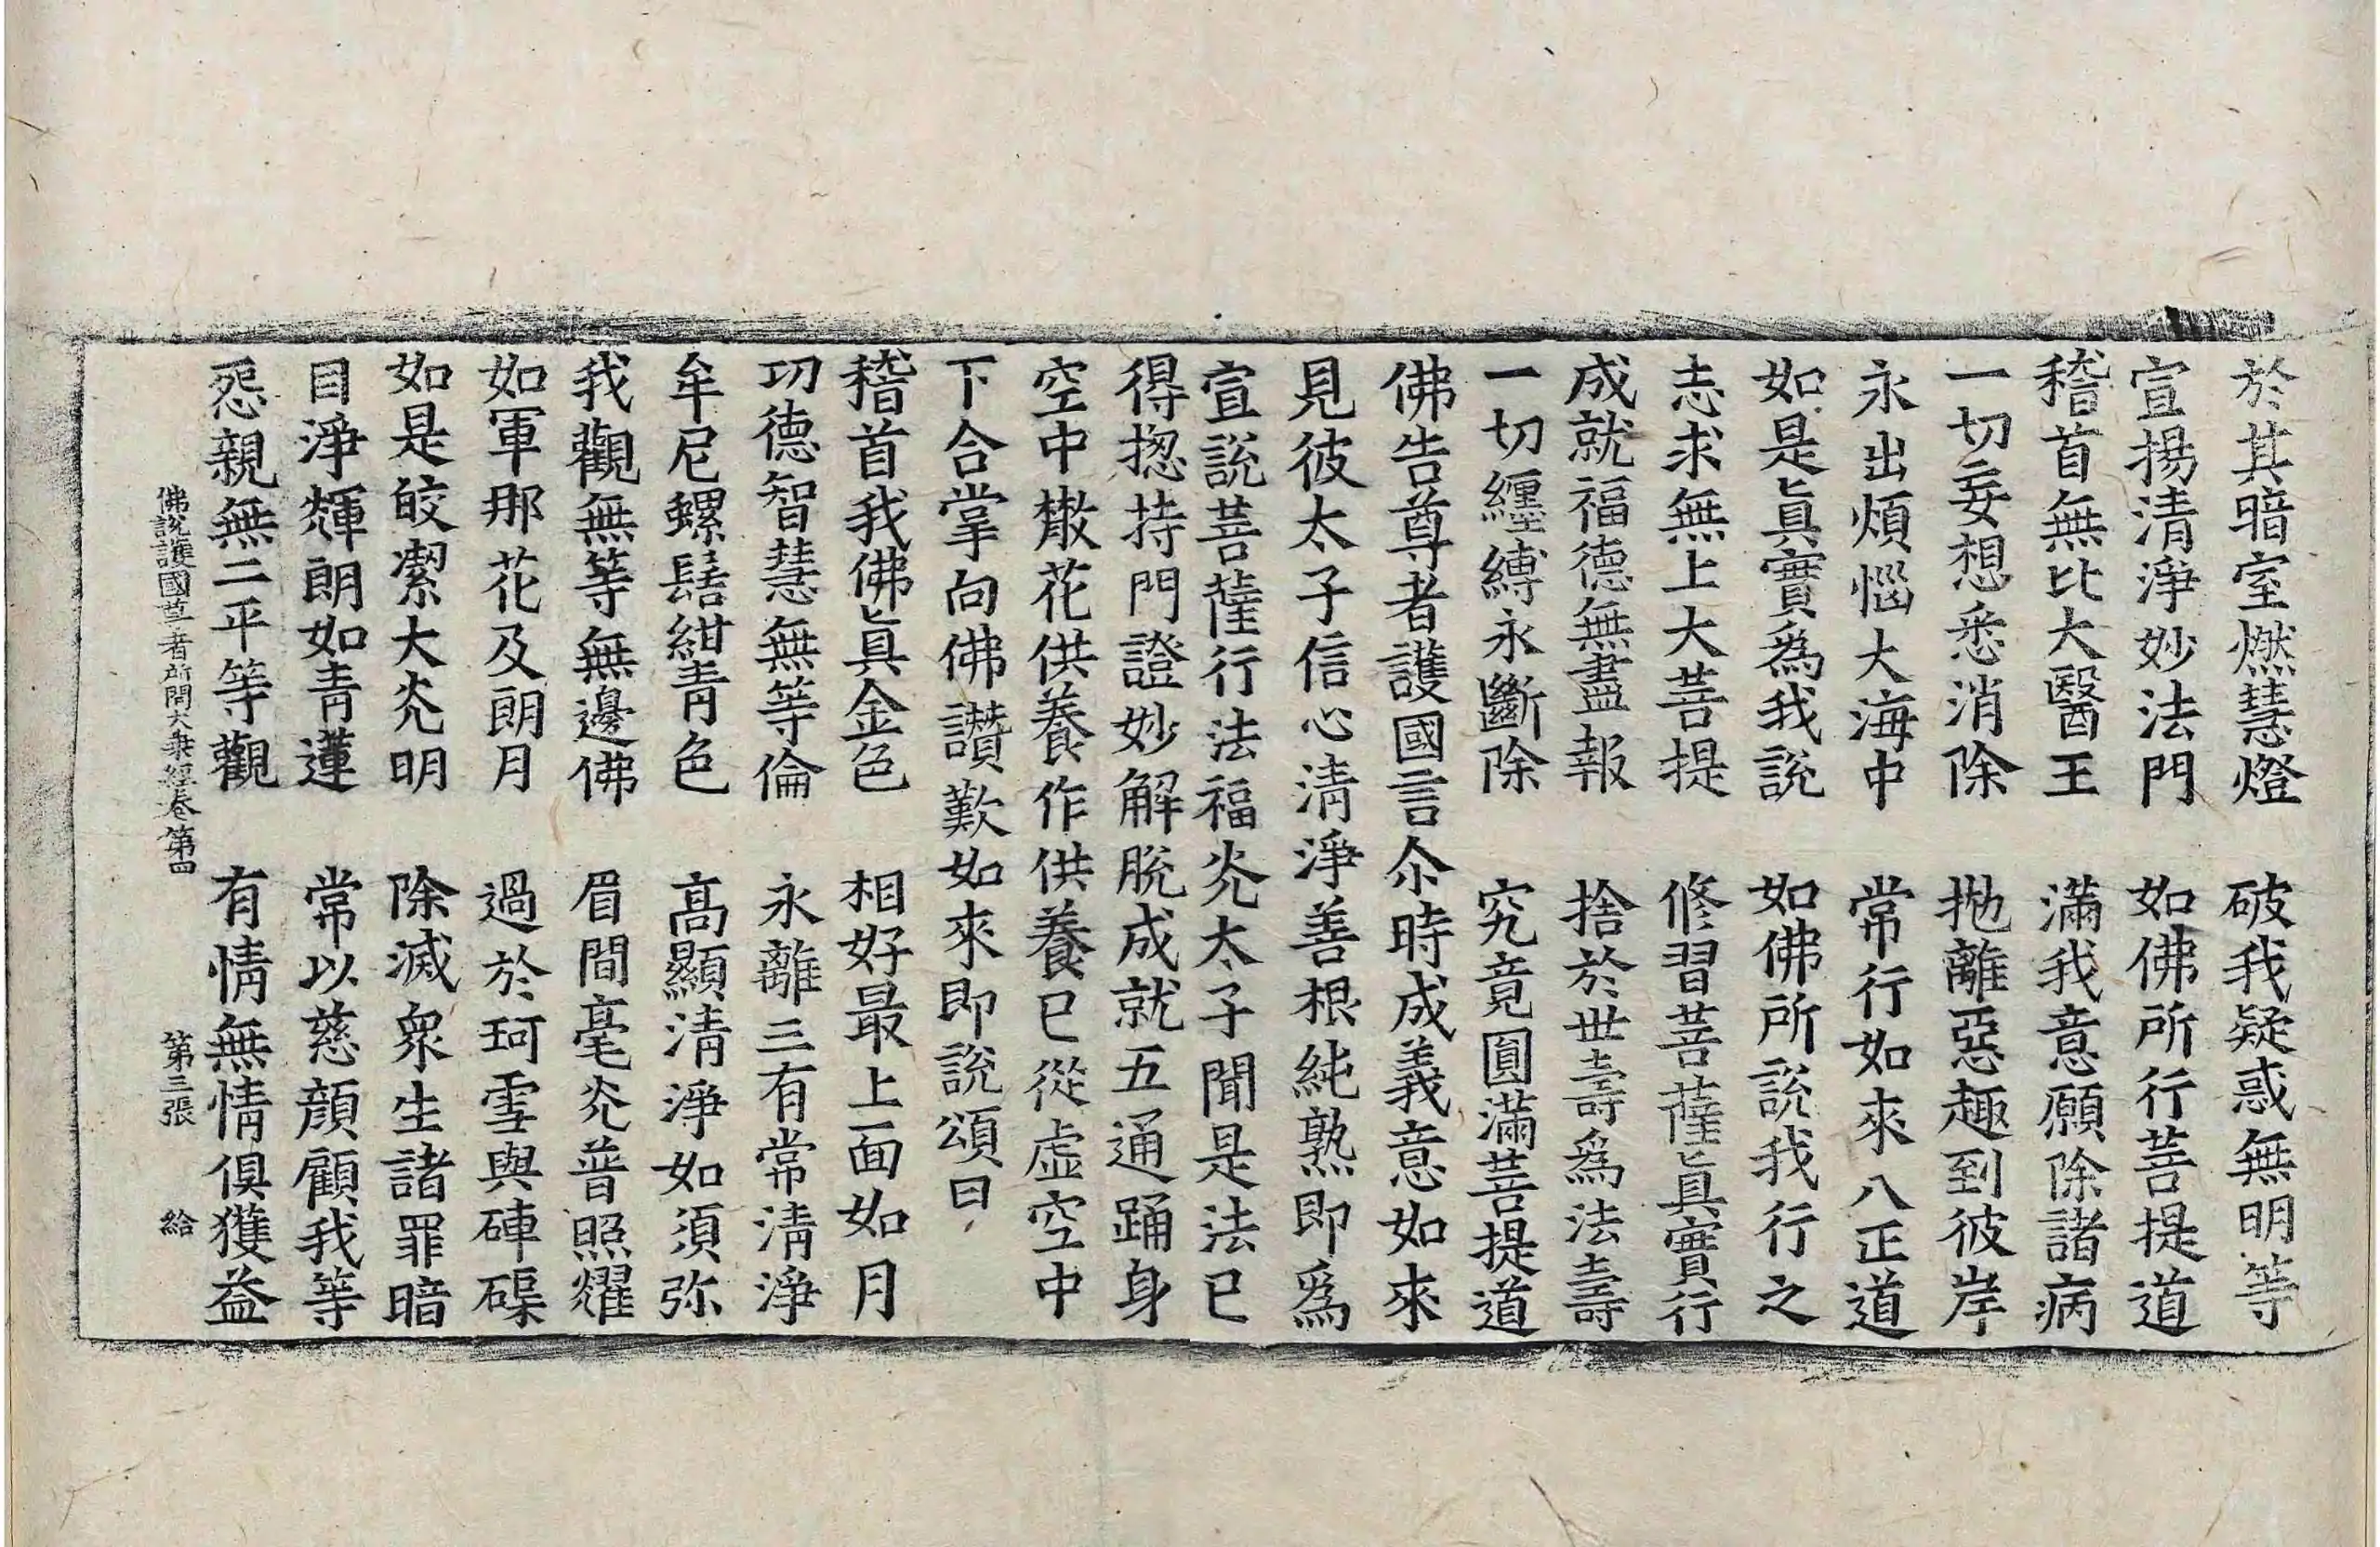 於其暗室燃慧燈　破我疑惑無明等
宣揚清淨妙法門　如佛所行菩提道
稽首無比大醫王　滿我意願除諸病
一切妄想悉消除　拋離惡趣到彼岸
永出煩惱大海中　常行如來八正道
如是眞實爲我說　如佛所說我行之
志求無上大菩提　修習菩薩眞實行
成就福德無盡報　捨於世壽爲法壽
一切纏縛永斷除　究竟圓滿菩提道
佛告尊者護國言尒時成義意如來
見彼太子信心清淨善根純熟即爲
宣說菩薩行法福光太子聞是法已
得揔持門證妙解脫成就五通踊身
空中散花供養作供養已從虛空中
下合掌向佛讚歎如來即說頌曰
稽首我佛眞金色　相好最上面如月
功德智慧無等倫　永離三有常清淨
牟尼螺髻紺青色　高顯清淨如須弥
我觀無等無邊佛　眉間毫光普照耀
如軍那花及朗月　過於珂雪與硨磲
如是皎潔大光明　除滅衆生諸罪暗
目淨輝朗如青蓮　常以慈顏顧我等
怨親無二平等觀　有情無情俱獲益
佛說護國尊者所問大乘經卷第四　第三張　給